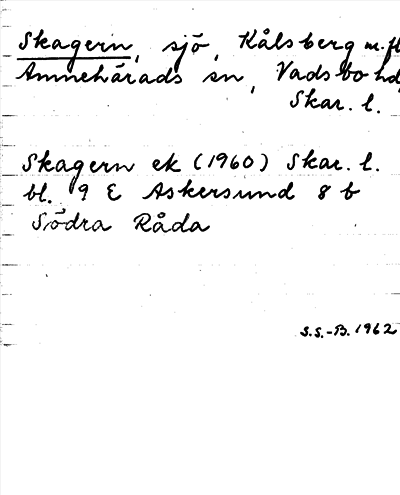 Skagern, sjö, Kålsberg m.fl
Amnehärads sn, Vadsbo hd,
Skar. l.
Skagern ek (1960) Skar. l.
bl. 9 E Askersund 8 b
Södra Råda
S.S.-B. 1962